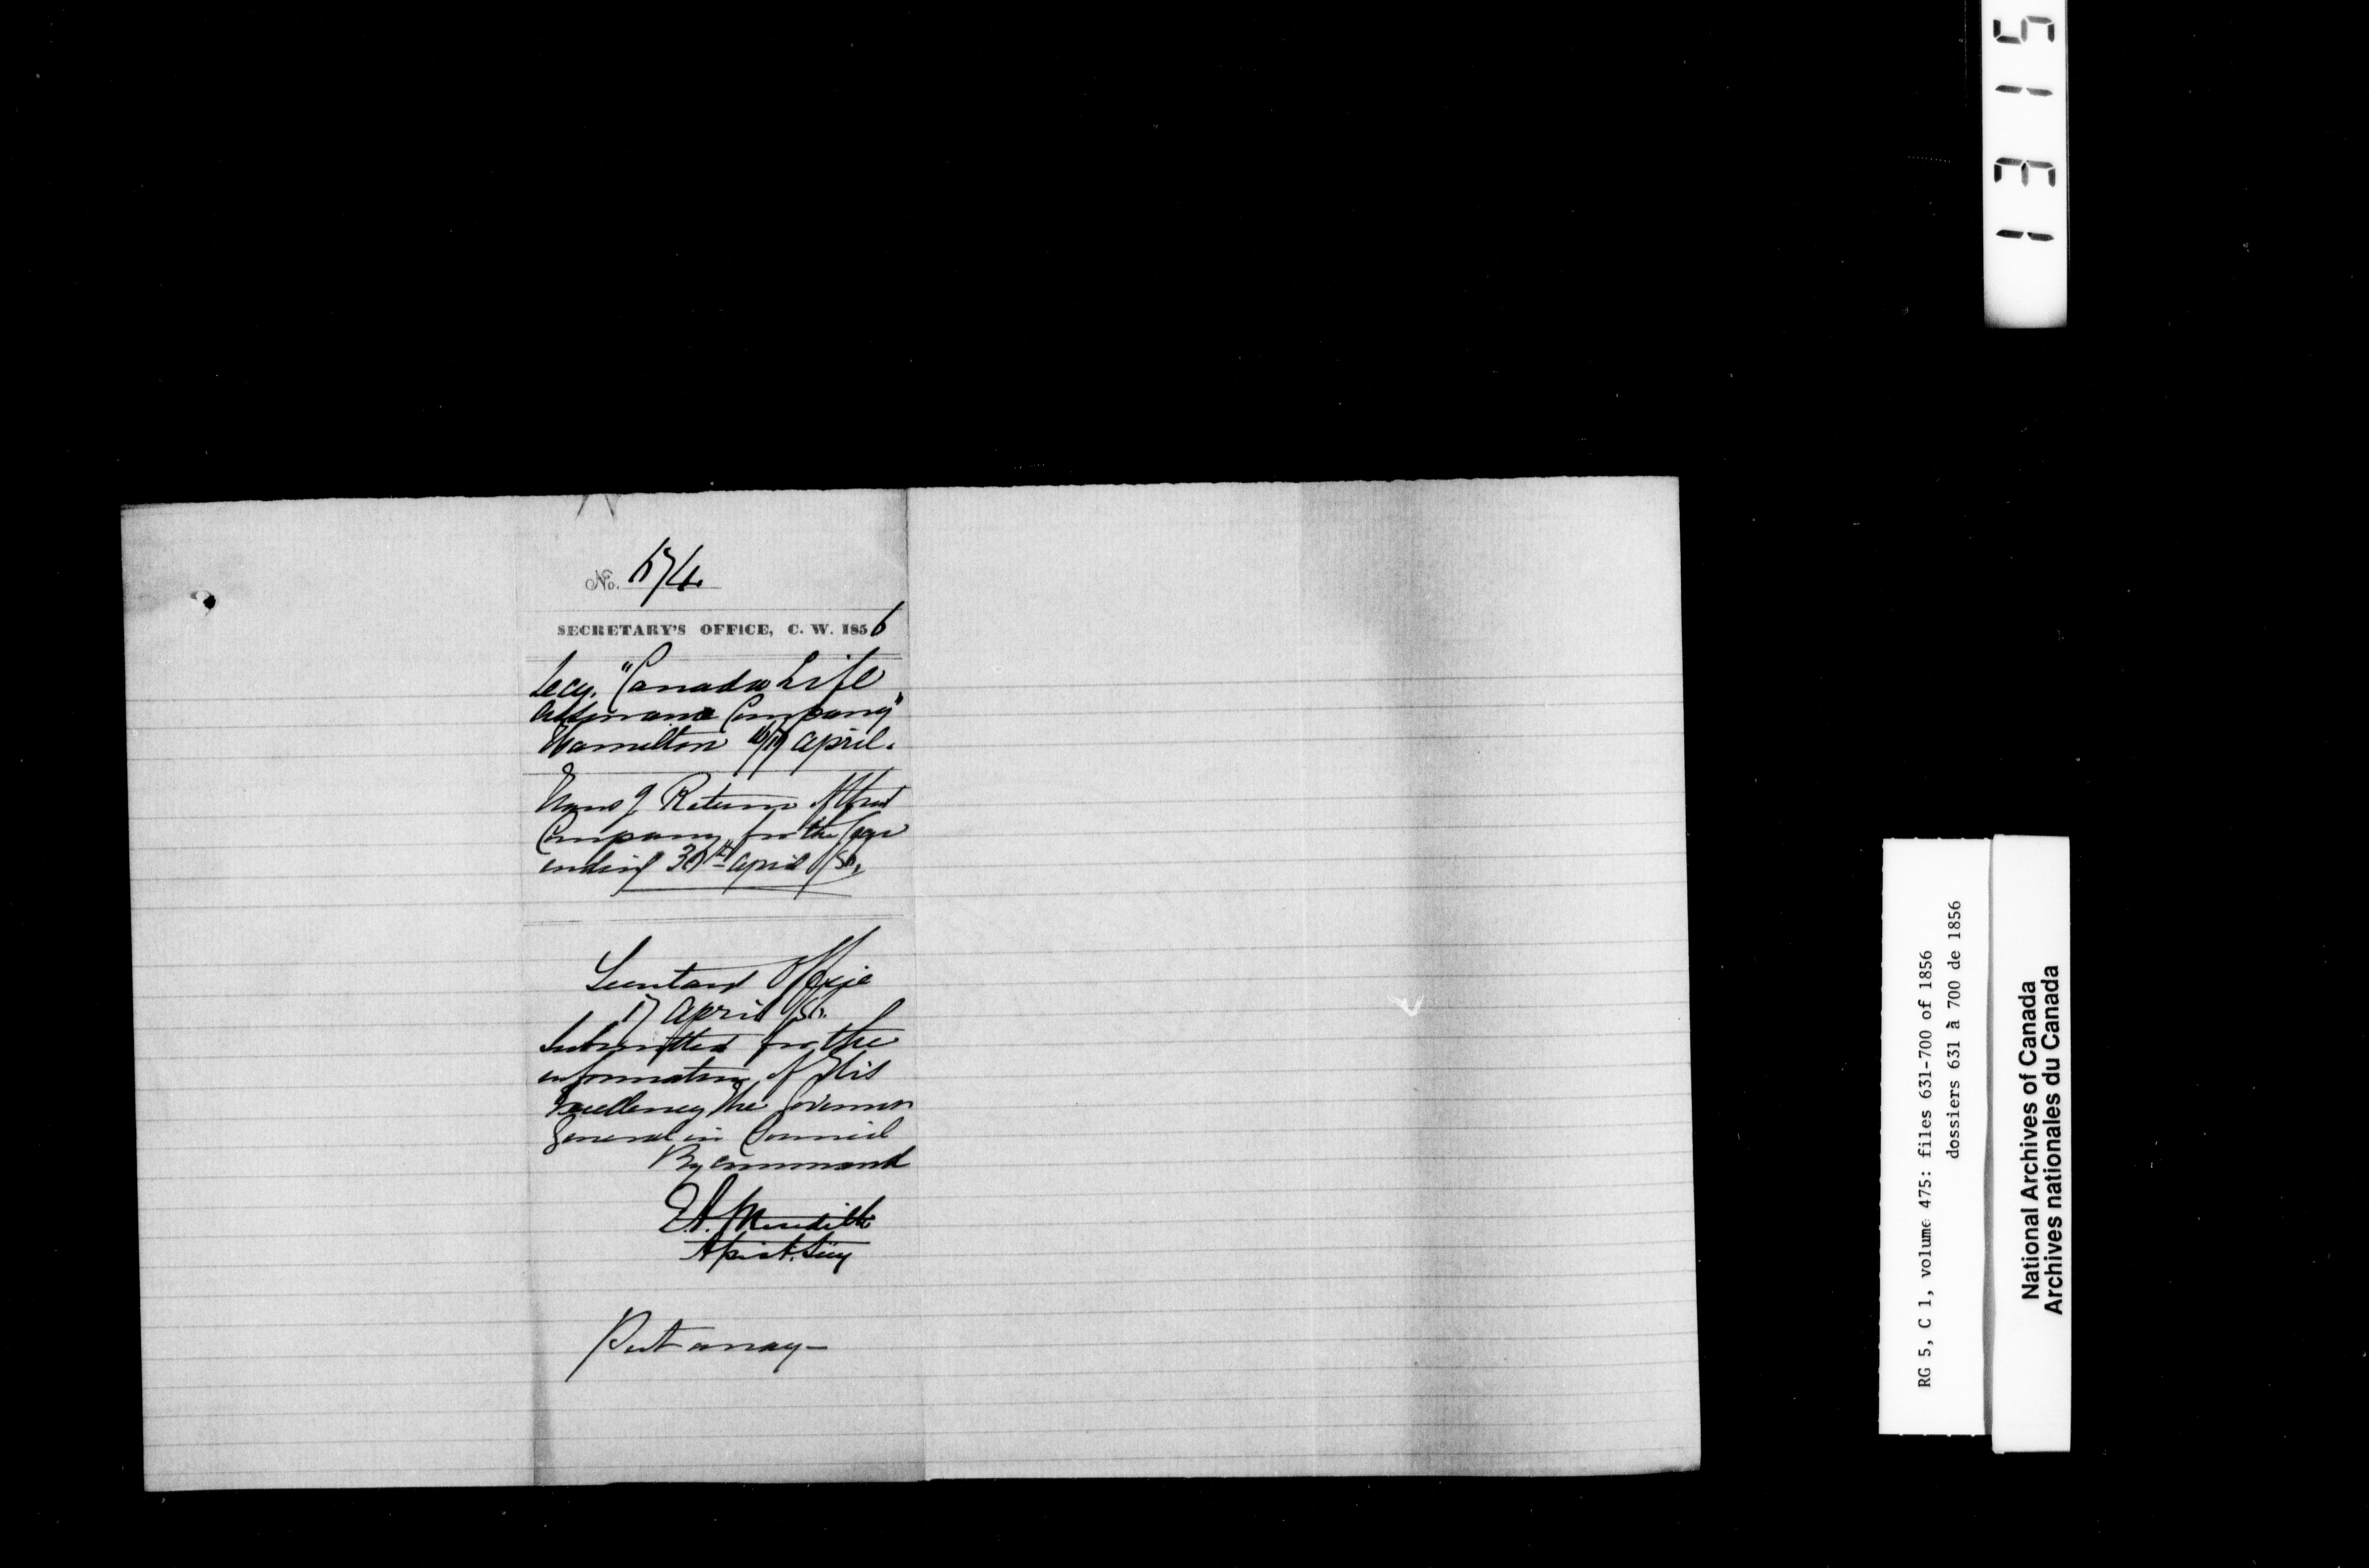 No. 674
SECRETARY'S OFFICE, C. W. 1856
Secy. "Canada Life
Assurance Company"
Hamilton April.
Transg Return of that
Company for the year
ending 30th April /56.
Secretary's Office
17 April /56.
Submitted for the
information of His
Excellency the Governor
General in Council
By Command
E.A. Meredith
Assist. Secy
Put away—
1315
RG 5, C 1, volume 475: files 631-700 of 1856
dossiers 631 à 700 de 1856
National Archives of Canada
Archives nationales du Canada